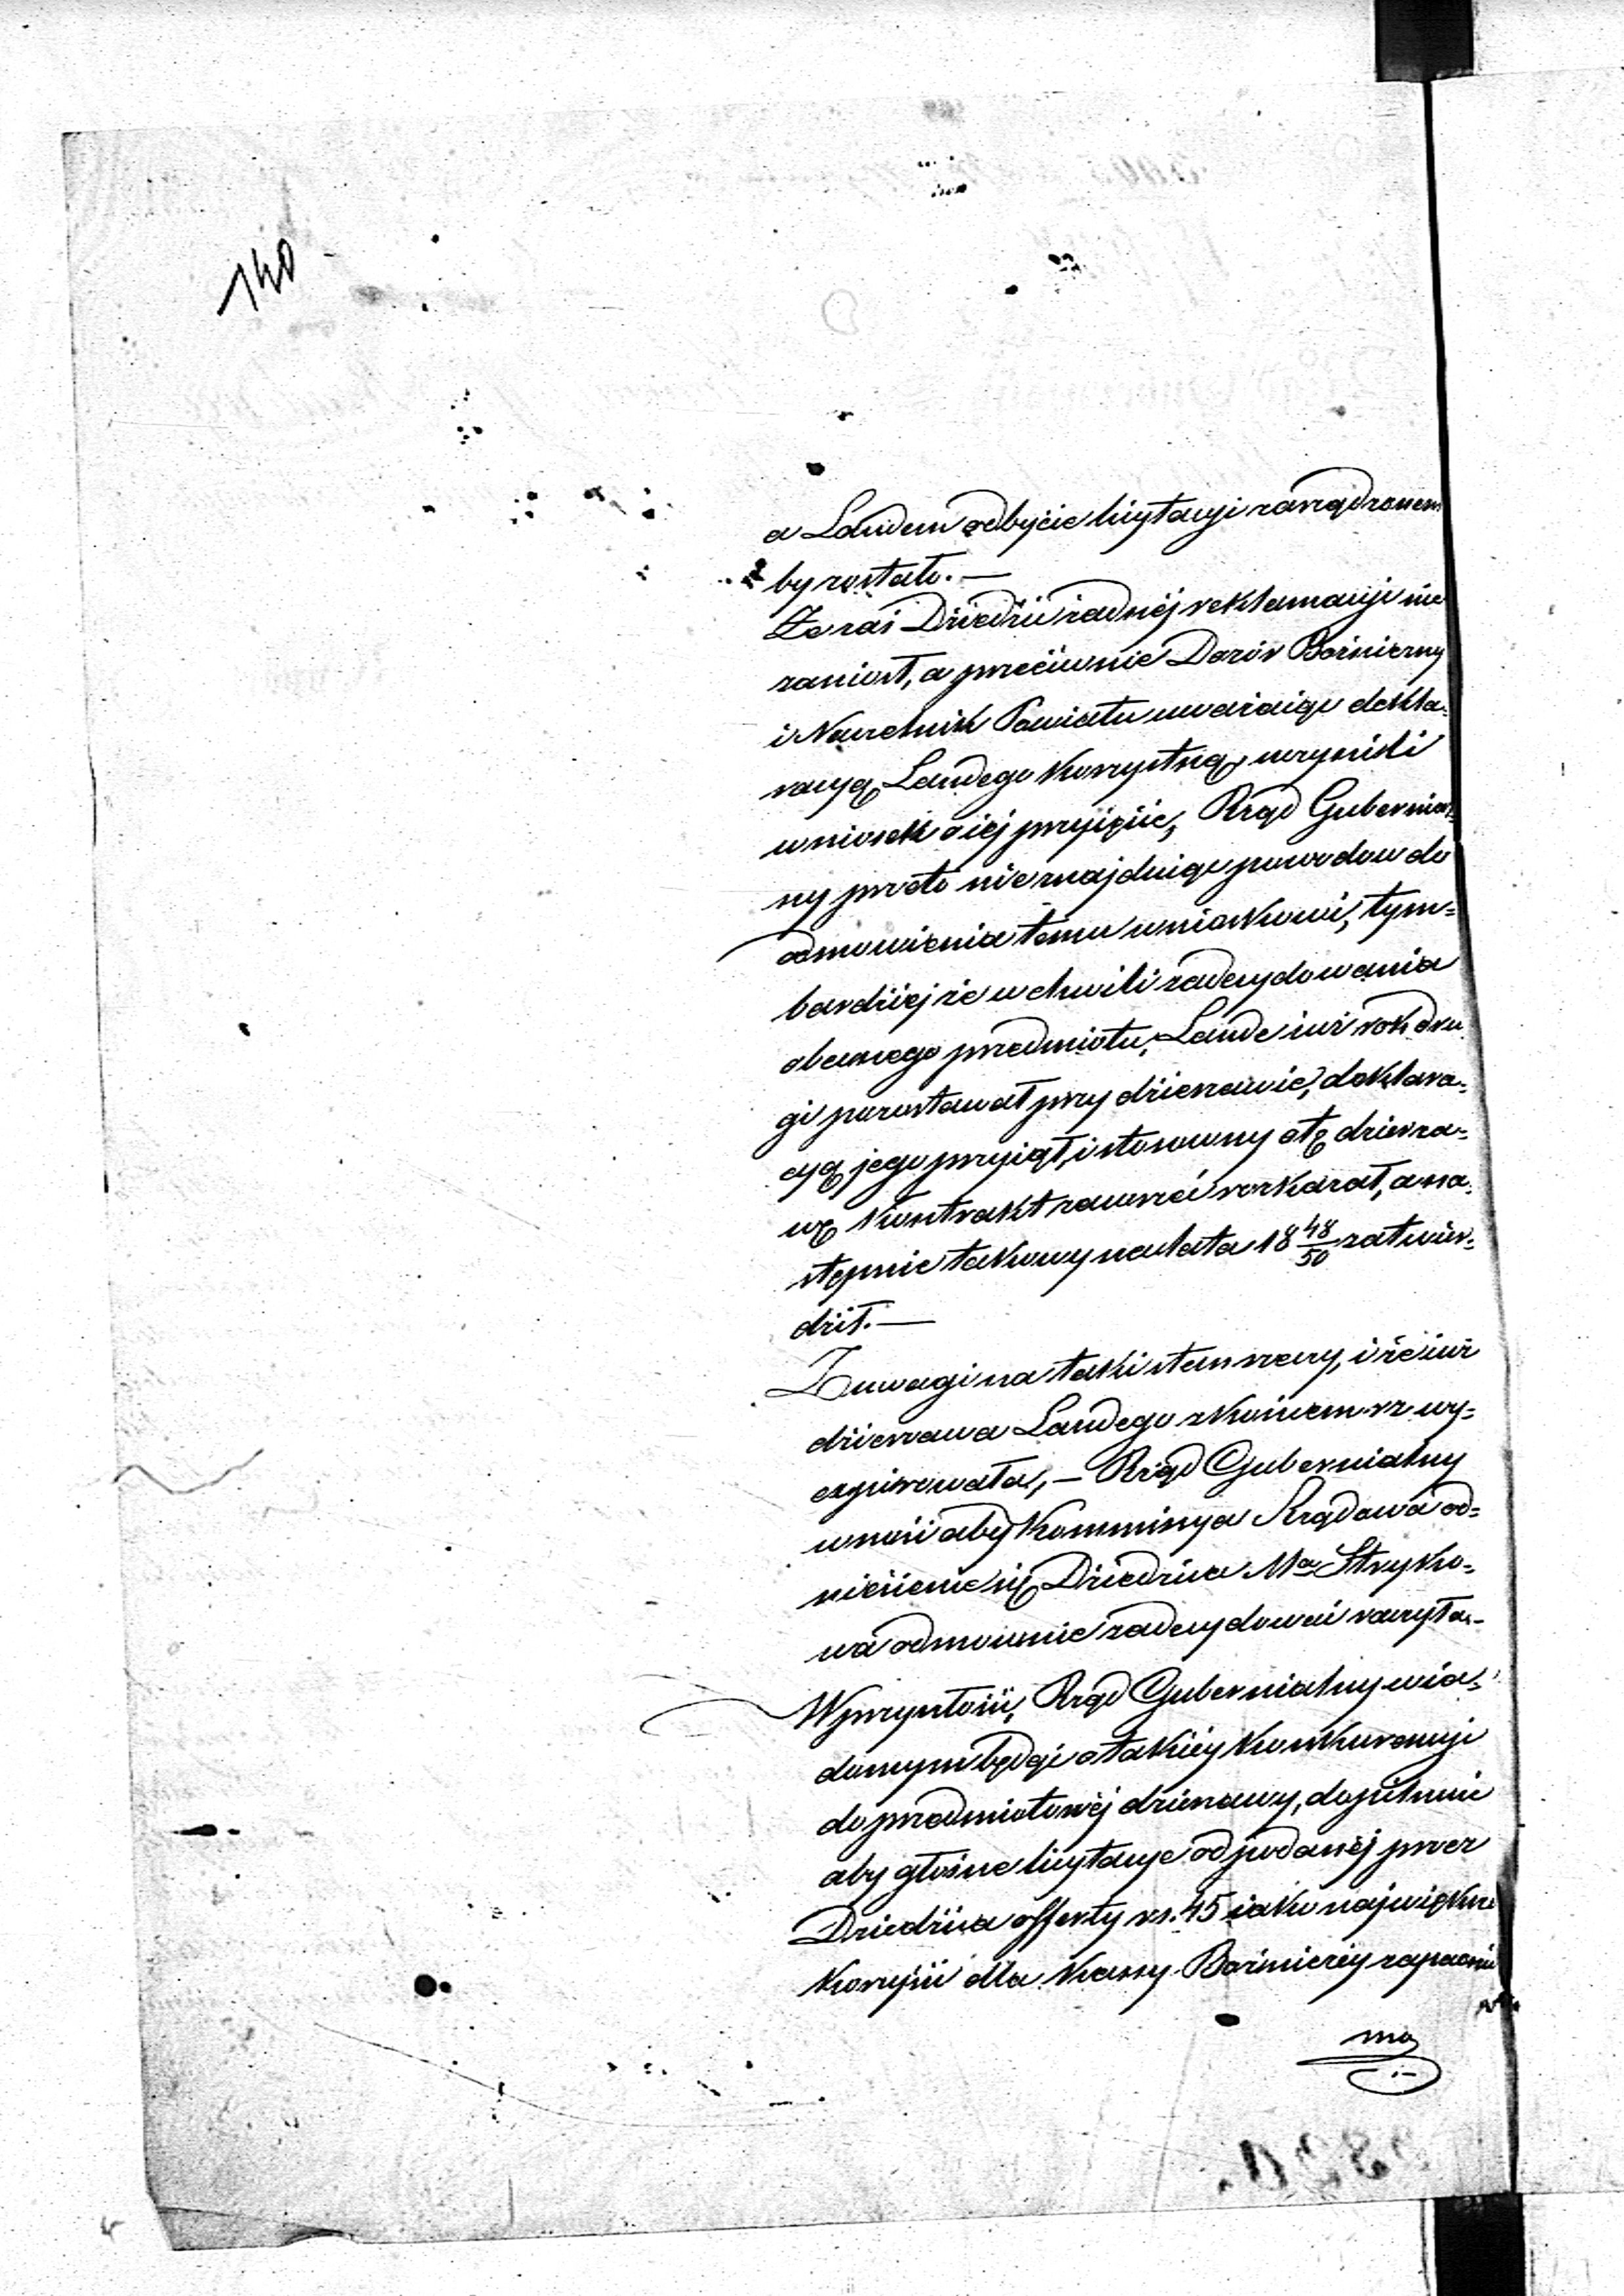 140
a Landem odbycie licytacyi zarządzonem
by zostało. —
Że zaś Dziedzic żadnéj reklamacyi nie
zaniósł, a przeciwnie Dozór Bożniczny
i Naczelnik Powiatu uważając dekla-
racyą Landego korzystną, uczynili
wniosek o iéj przyięcie, Rząd Gubernial-
ny przeto nieznajduiąc powodów do
odmówienia temu wnioskowi, tym-
bardziéj że w chwili zadecydowania
obecnego przedmiotu, Lande iuż rok dru
gi pozostawał przy dzierżawie, deklara-
cyą jego przyiął, i stosowny o tę dzierża-
wę kontrakt zawrzéć rozkazał, a na-
stępnie takowy na lata 18 48/50 zatwier-
dził. —
Z uwagi na taki stan rzeczy, i że iuż
dzierżawa Landego z końcem rz wy-
expirowała, — Rząd Gubernialny
wnosi aby Kommisya Rządowa od-
niesienie się Dziedzica Mta Stryko-
wa odmownie zadecydować raczyła.
W przyszłości, Rząd Gubernialny wia-
domym będąc o takiéy konkurencyi
do przedmiotowéj dzierżawy, dopilnuie
aby głośne licytacye od podanéj przez
Dziedzica offerty rs. 45 iako największe
korzyści dla kassy Bożniczéy zapewnić
mo